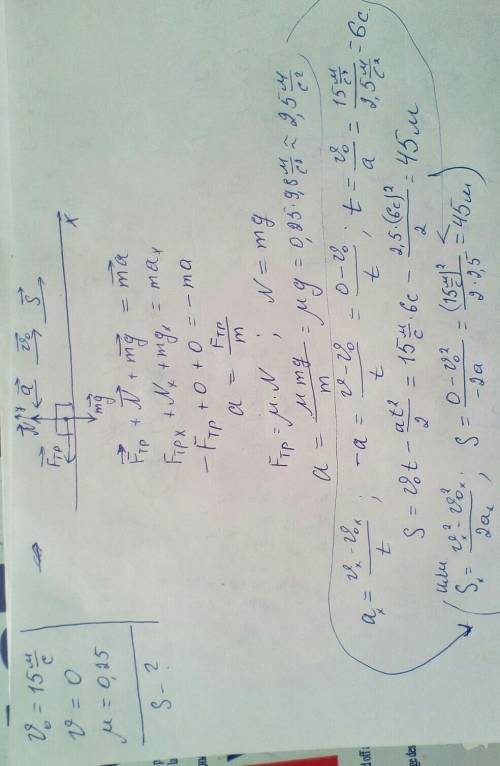 v₀ = 15 м/с
v = 0
μ = 0,25
S - ?
F⃗тр N⃗ a⃗ v⃗₀ S⃗
mg⃗ x
F⃗тр + N⃗ + mg⃗ = ma⃗
Fтр x + Nx + mgx = max
-Fтр + 0 + 0 = -ma
a = Fтр/m
Fтр = μ·N ; N = mg
a = μmg/m = μg = 0,25·9,8 м/с² ≈ 2,5 м/с²
ax = (vx - v₀x)/t ; -a = (v - v₀)/t = (0 - v₀)/t ; t = v₀/a = (15 м/с)/(2,5 м/с²) = 6с.
S = v₀t - at²/2 = 15 м/с · 6с - 2,5·(6с)²/2 = 45м
или
Sx = (vx² - v₀x²)/2ax , S = (0 - v₀²)/-2a = (15 м/с)²/2·2,5 = 45м)